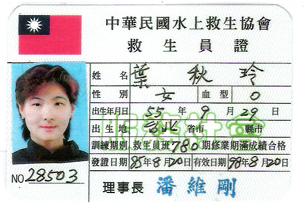 中華民國水上救生協會
救生員證
姓名 葉秋玲
性別 女 血型 O
出生年月日 55年9月29日
出生地 台北 省市 縣市
訓練期別 救生員班780期修業期滿成績合格
發證日期 95年8月20日有效日期98年8月20日
NO 28503
理事長 潘維剛